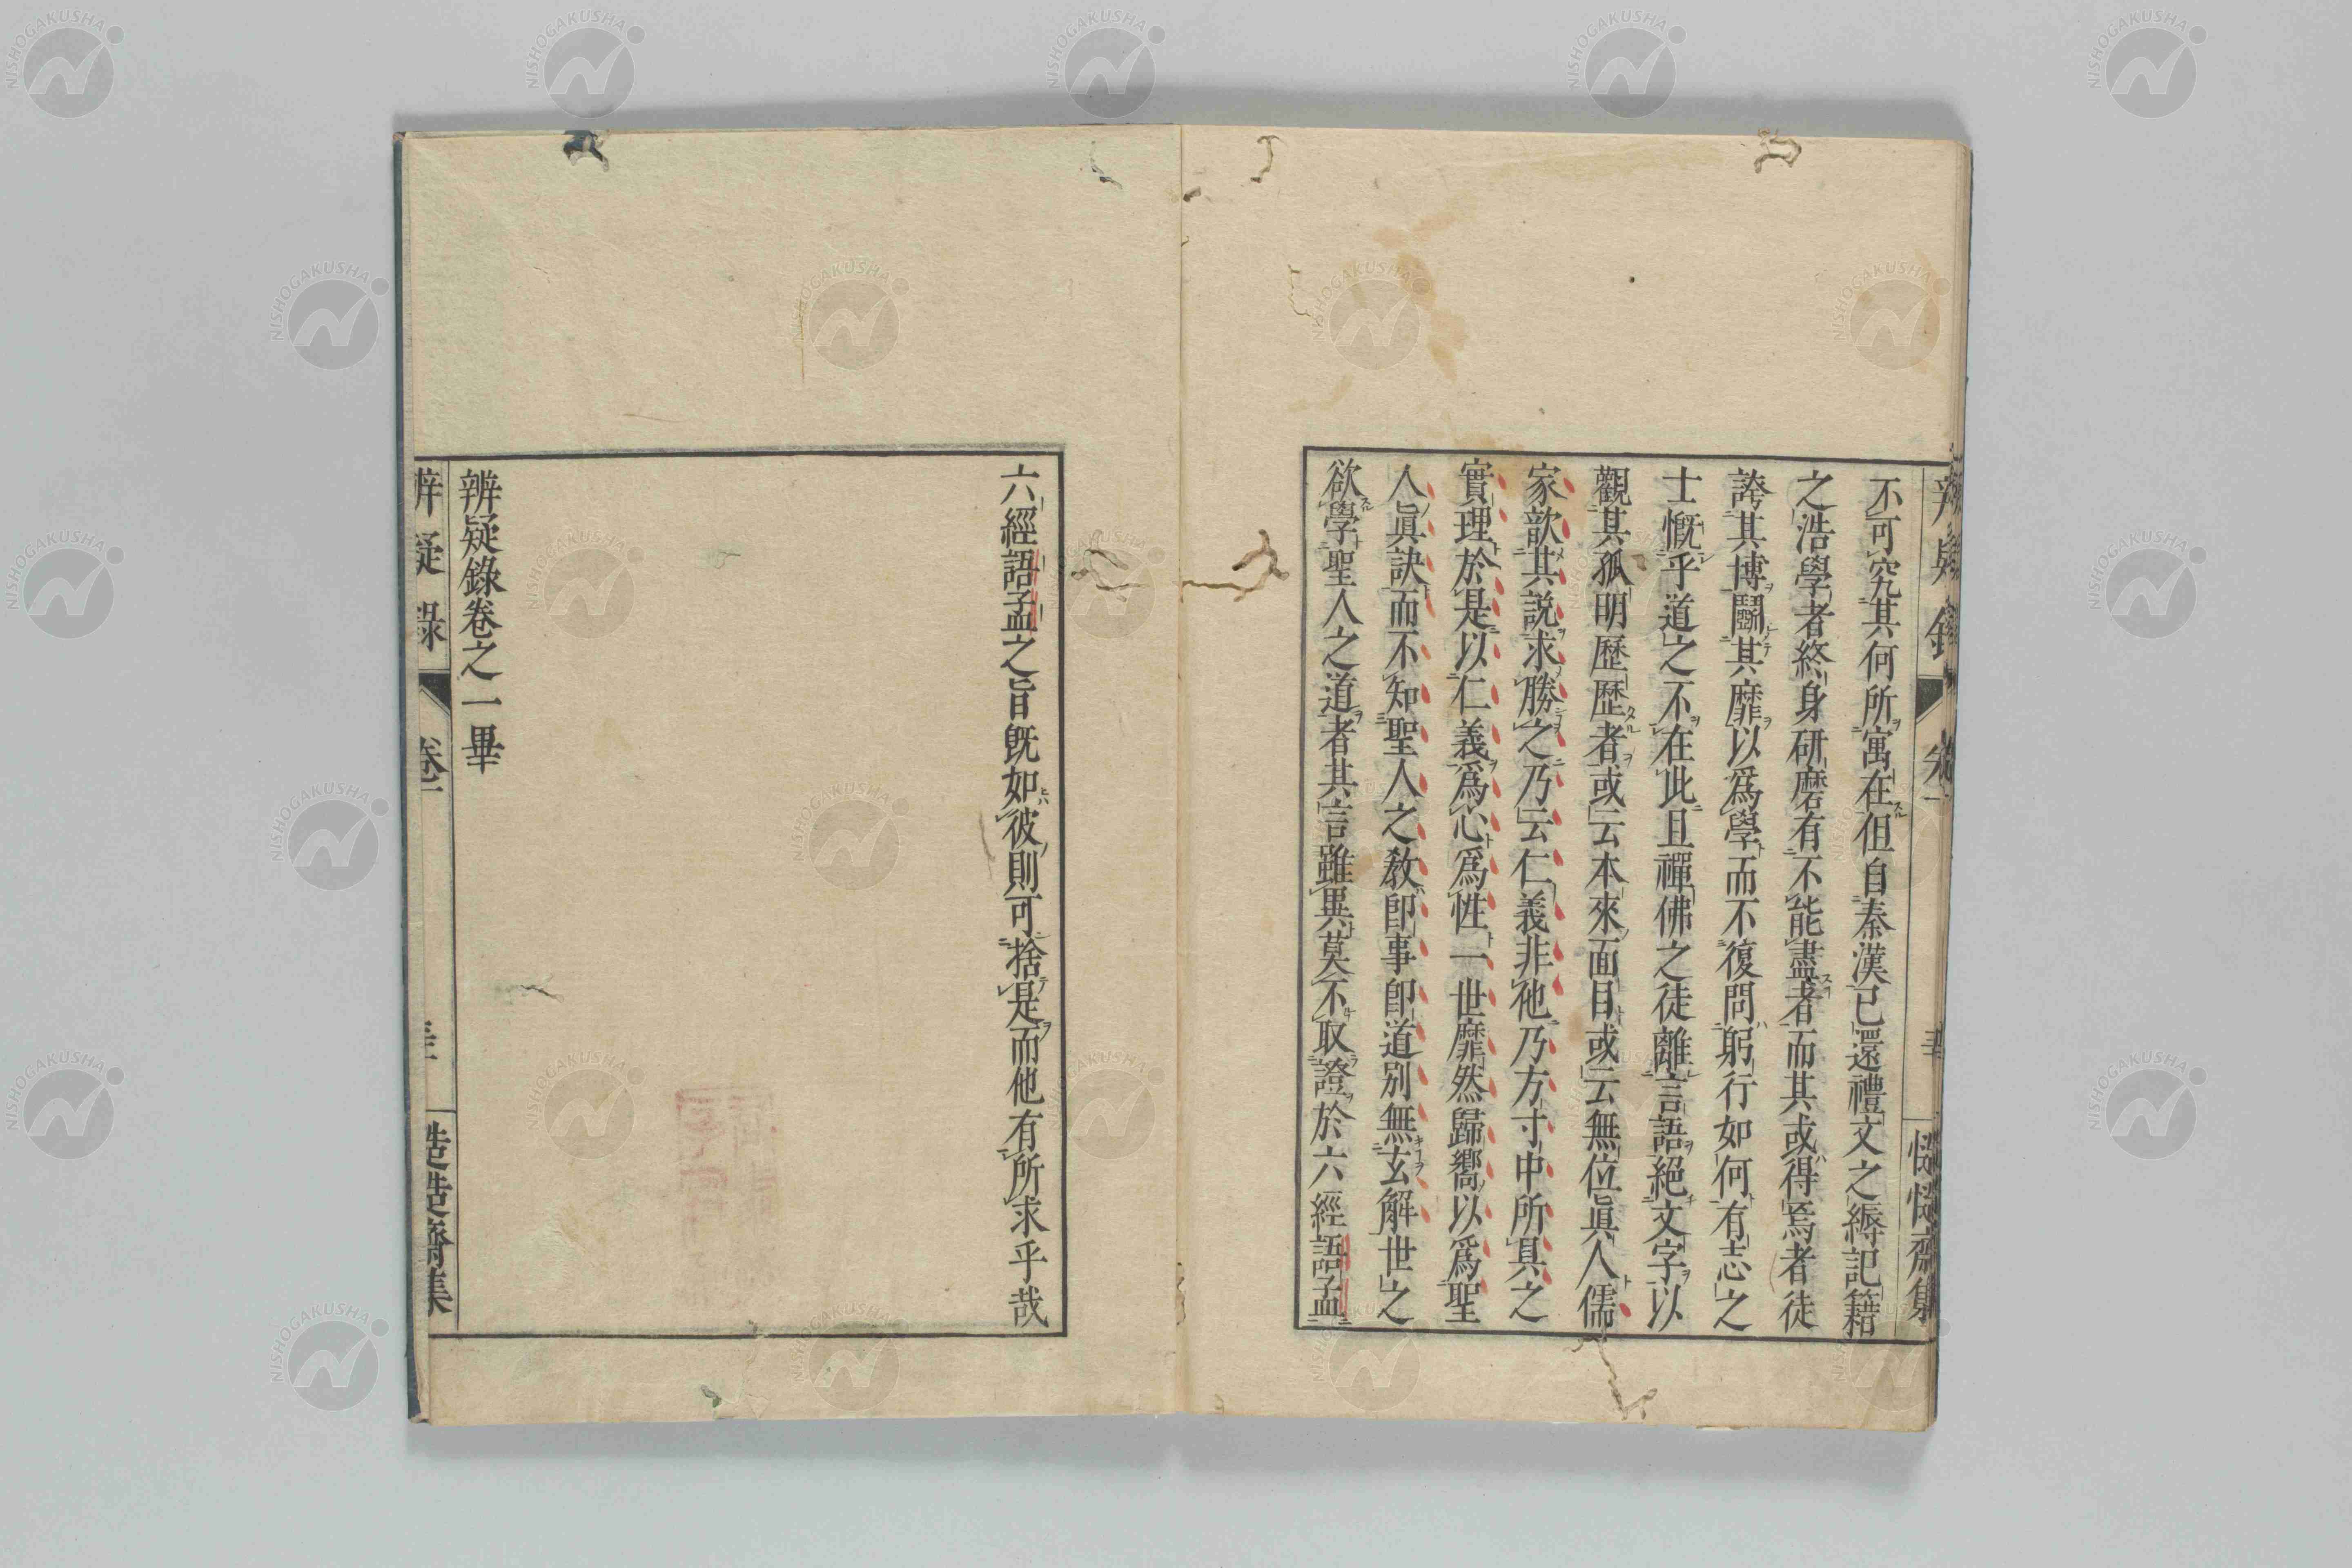 不可究其何所寓在但自秦漢已還禮文之縟記籍
之浩學者終身研磨有不能盡者而其或得焉者徒
誇其博鬪其靡以爲學而不復問躬行如何有志之
士慨乎道之不在此且禪佛之徒離言語絕文字以
觀其孤明歷歷者或云本來面目或云無位眞人儒
家歆其説求勝之乃云仁義非他乃方寸中所具之
實理於是以仁義爲心爲性一世靡然歸嚮以爲聖
人眞訣而不知聖人之教卽事卽道別無玄解世之
欲學聖人之道者其言雖異莫不取證於六經語孟
六經語孟之旨旣如彼則可捨是而他有所求乎哉
辨疑錄卷之一畢
辨疑錄
卷一
慥慥齋集
NISHOGAKUSHA